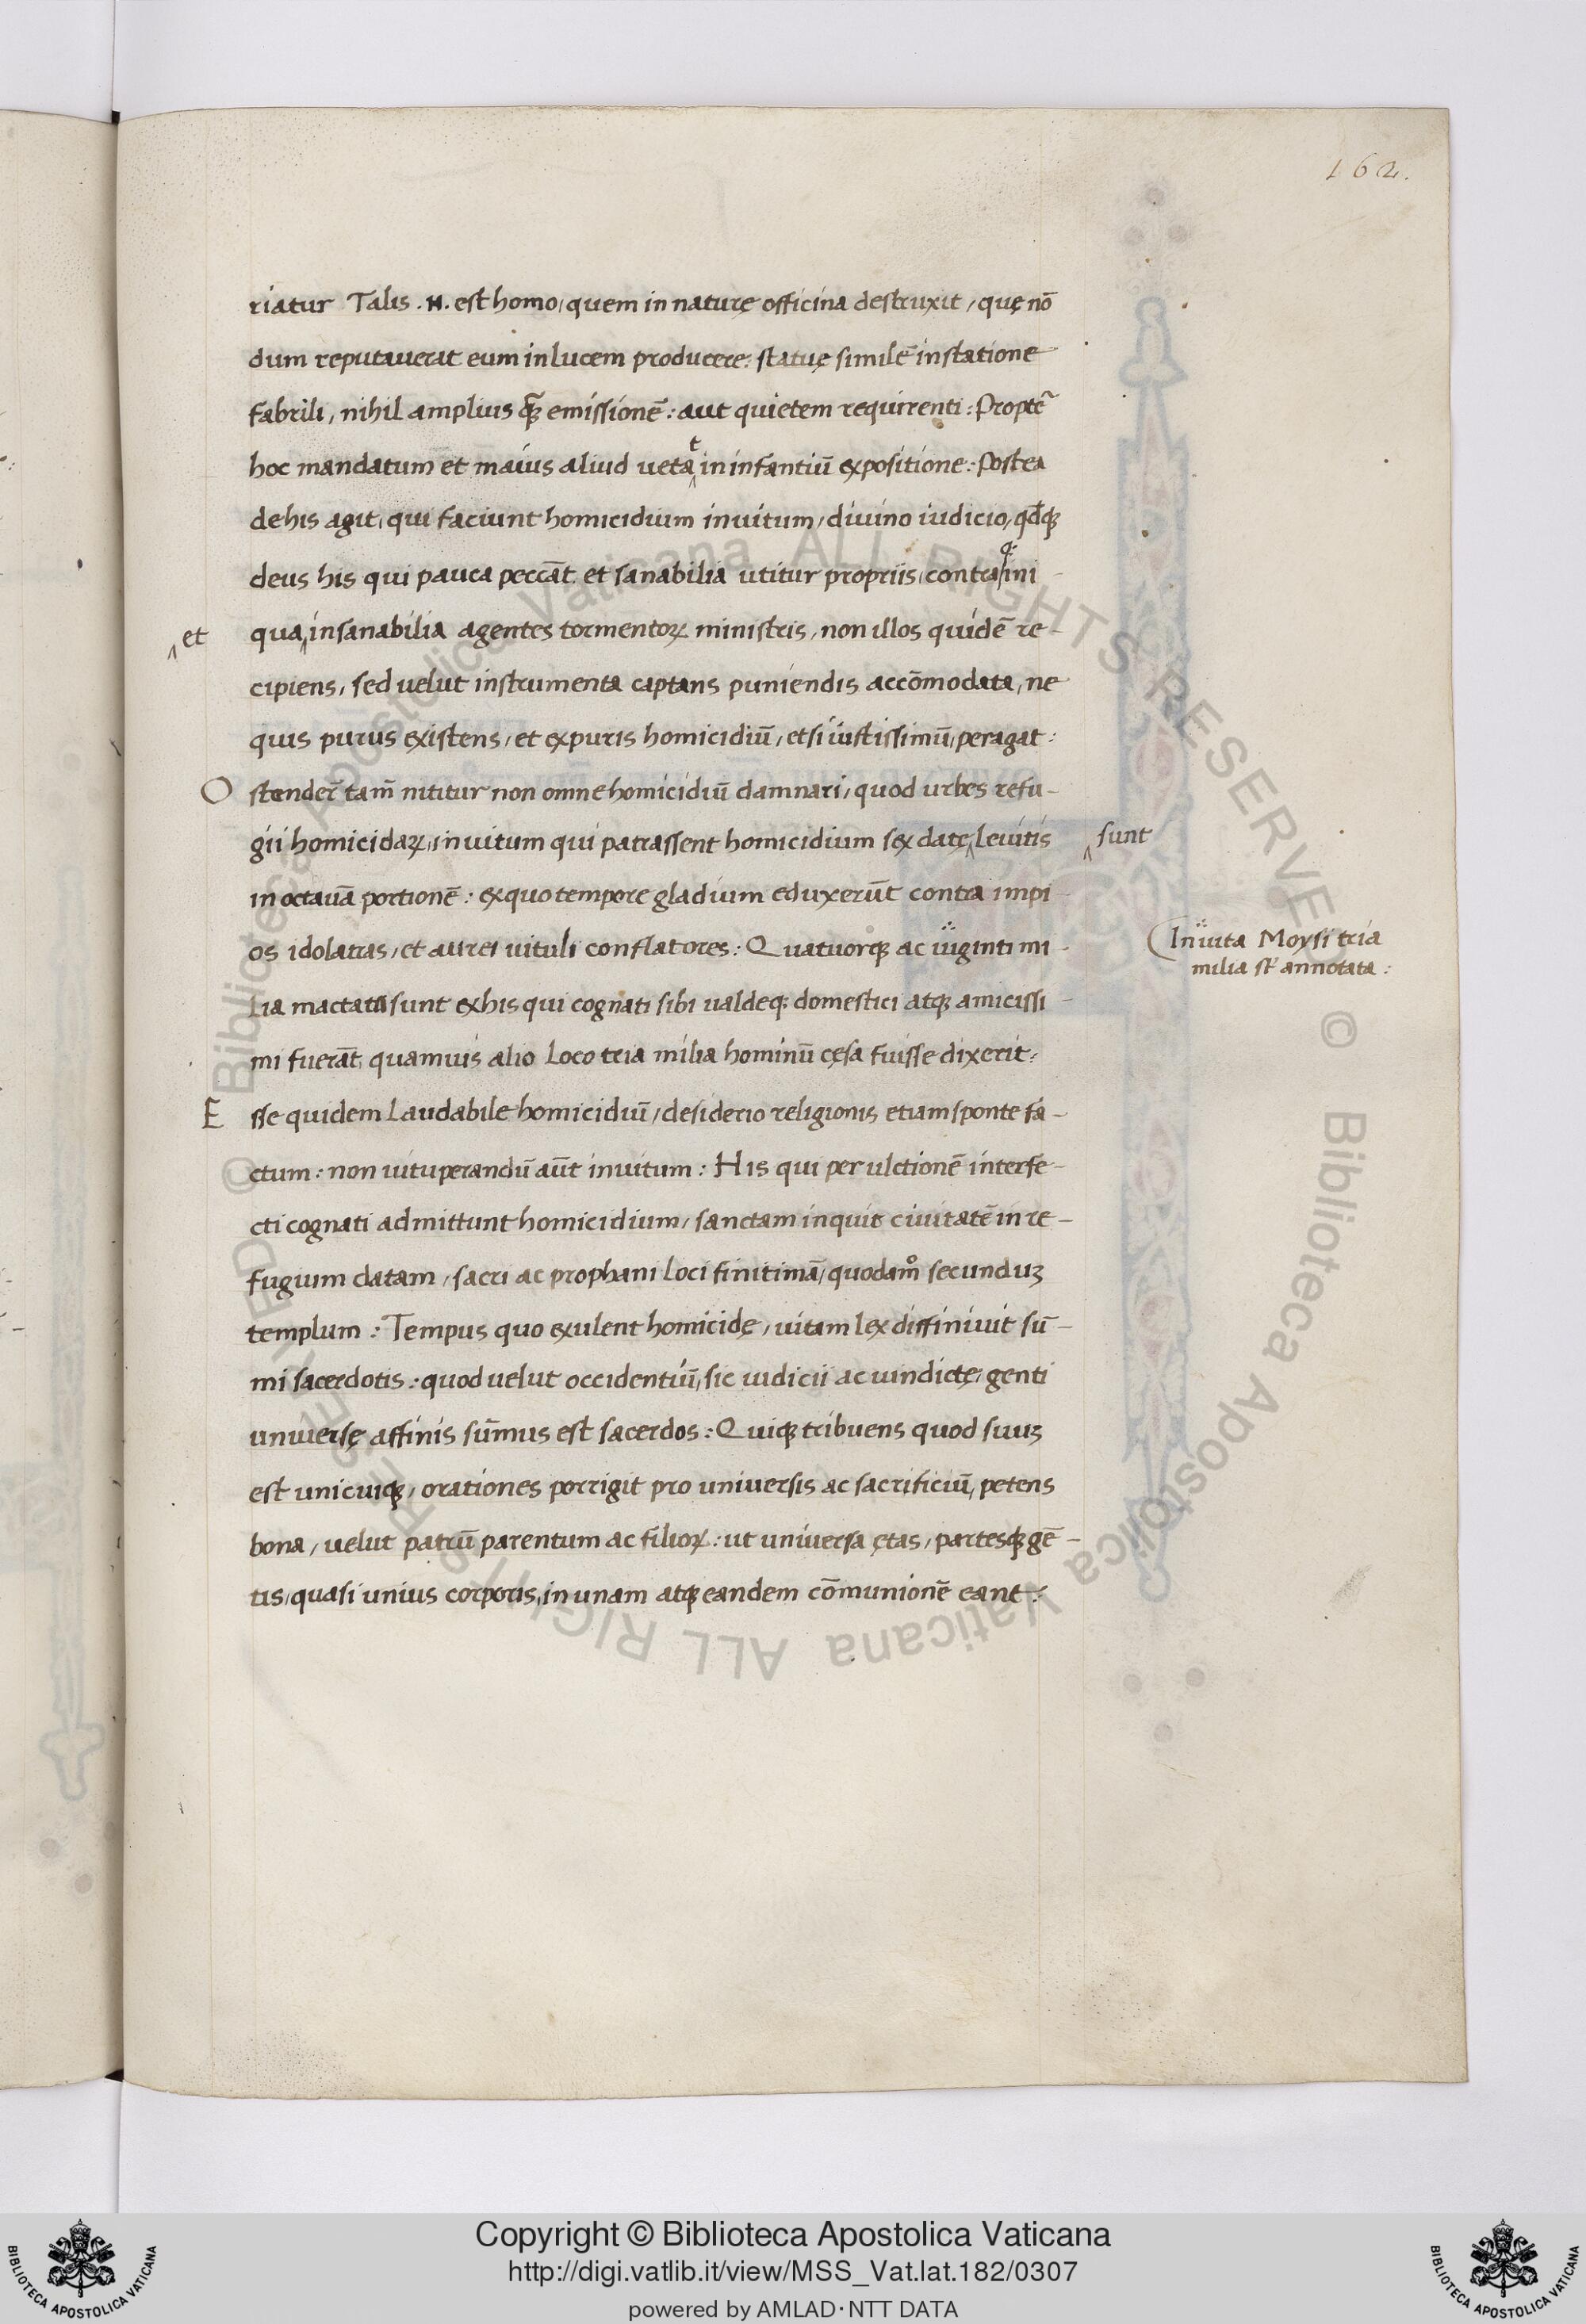 162.
riatur Talis .N. est homo, quem in naturę officina destruxit, quę nō
dum reputauerat eum in lucem producere: statuę similē in statione
fabrili, nihil amplius q̄ꝫ emissionē: aut quietem requirenti: Propt̄
hoc mandatum et maius aliud uetat in infantiū expositione: Postea
de his agit, qui faciunt homicidium inuitum, diuino iudicio, qđqꝫ
deus his qui pauca peccāt et sanabilia utitur propriis, contra q̇ ini
et
qua insanabilia agentes tormentoꝝ ministris, non illos quidē re-
cipiens, sed uelut instrumenta captans puniendis accōmodata, ne
quis purus existens, et ex puris homicidiū, etsi iustissimū, peragat:
Ostender̄ tam̄ nititur non omne homicidiū damnari, quod urbes refu-
gii homicidaꝝ, inuitum qui patrassent homicidium sex datę Leuitis
sunt
in octauā portionē: ex quo tempore gladium eduxerūt contra impi
os idolatras, et aurei uituli conflatores: Quatuorqꝫ ac uiginti mi-
Inuita Moysi tria
milia st̄ annotata:
lia mactata sunt ex his qui cognati sibi ualdeqꝫ domestici atqꝫ amicissi-
mi fuerāt, quamuis alio loco tria milia hominū cęsa fuisse dixerit:
Esse quidem laudabile homicidiū, desiderio religionis etiam sponte fa-
ctum: non uituperandū aūt inuitum: His qui per ulctionē interfe-
cti cognati admittunt homicidium, sanctam inquit ciuitatē in re-
fugium datam, sacri ac prophani loci finitimā, quodam̊ secunduꝫ
templum: Tempus quo exulent homicidę, uitam lex diffiniuit sū-
mi sacerdotis: quod uelut occidentiū, sic iudicii ac uindictę, genti
uniuersę affinis sūmus est sacerdos: Quiqꝫ tribuens quod suuꝫ
est unicuiqꝫ, orationes porrigit pro uniuersis ac sacrificiū, petens
bona, uelut patrū parentum ac filioꝝ: ut uniuersa ętas, partesqꝫ gē-
tis, quasi unius corporis, in unam atqꝫ eandem cōmunionē eant:
© Biblioteca Apostolica Vaticana ALL RIGHTS RESERVED © Biblioteca Apostolica Vaticana ALL RIGHTS RESERVED
Copyright © Biblioteca Apostolica Vaticana
http://digi.vatlib.it/view/MSS_Vat.lat.182/0307
powered by AMLAD·NTT DATA
BIBLIOTECA APOSTOLICA VATICANA
BIBLIOTECA APOSTOLICA VATICANA